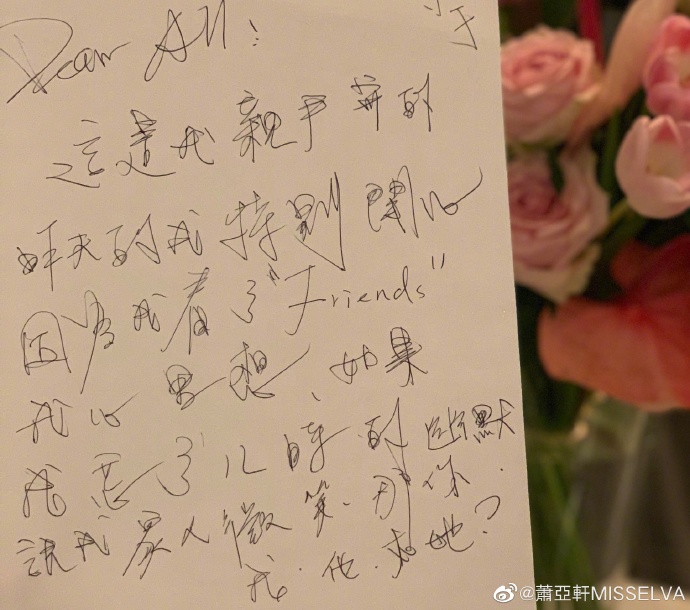 Dear All:
這是我親手寫的
昨天的我特別開心
因為我看了"Friends"
我心思想、如果
我忘了儿時的幽默
說我眾人微笑、那你.
我.他.她?
@蕭亞軒MISSELVA